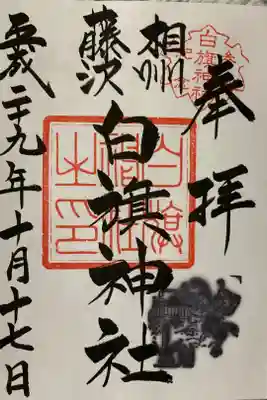 奉拝
相州
藤沢
白旗神社
白旗神社之印
平成二十九年十月十七日